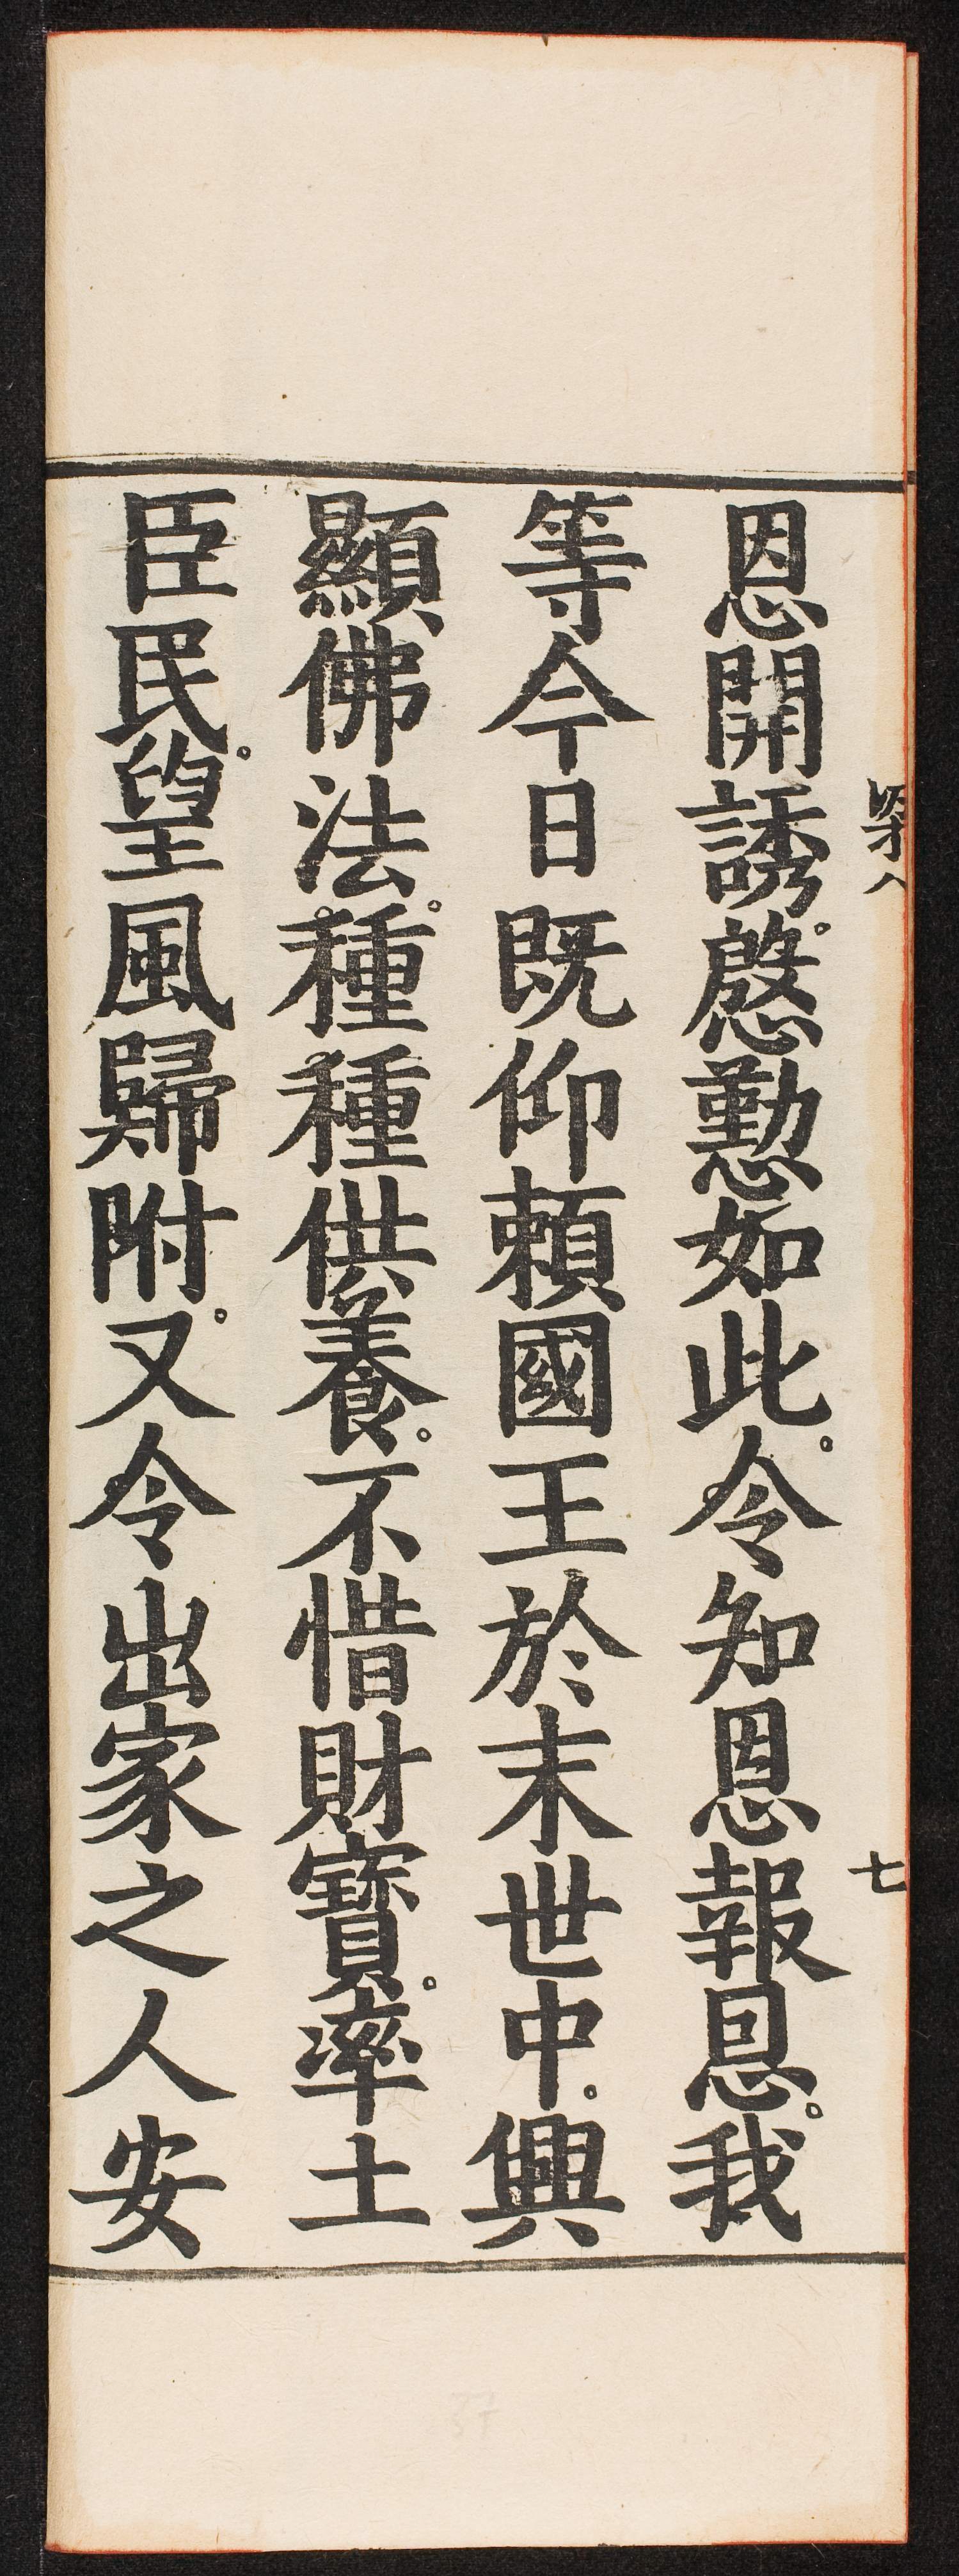 恩開誘。慇懃如此。令知恩報恩。我
等今日既仰賴國王於末世中。興
顯佛法。種種供養。不惜財寶。率土
臣民。望風歸附。又令出家之人安
七